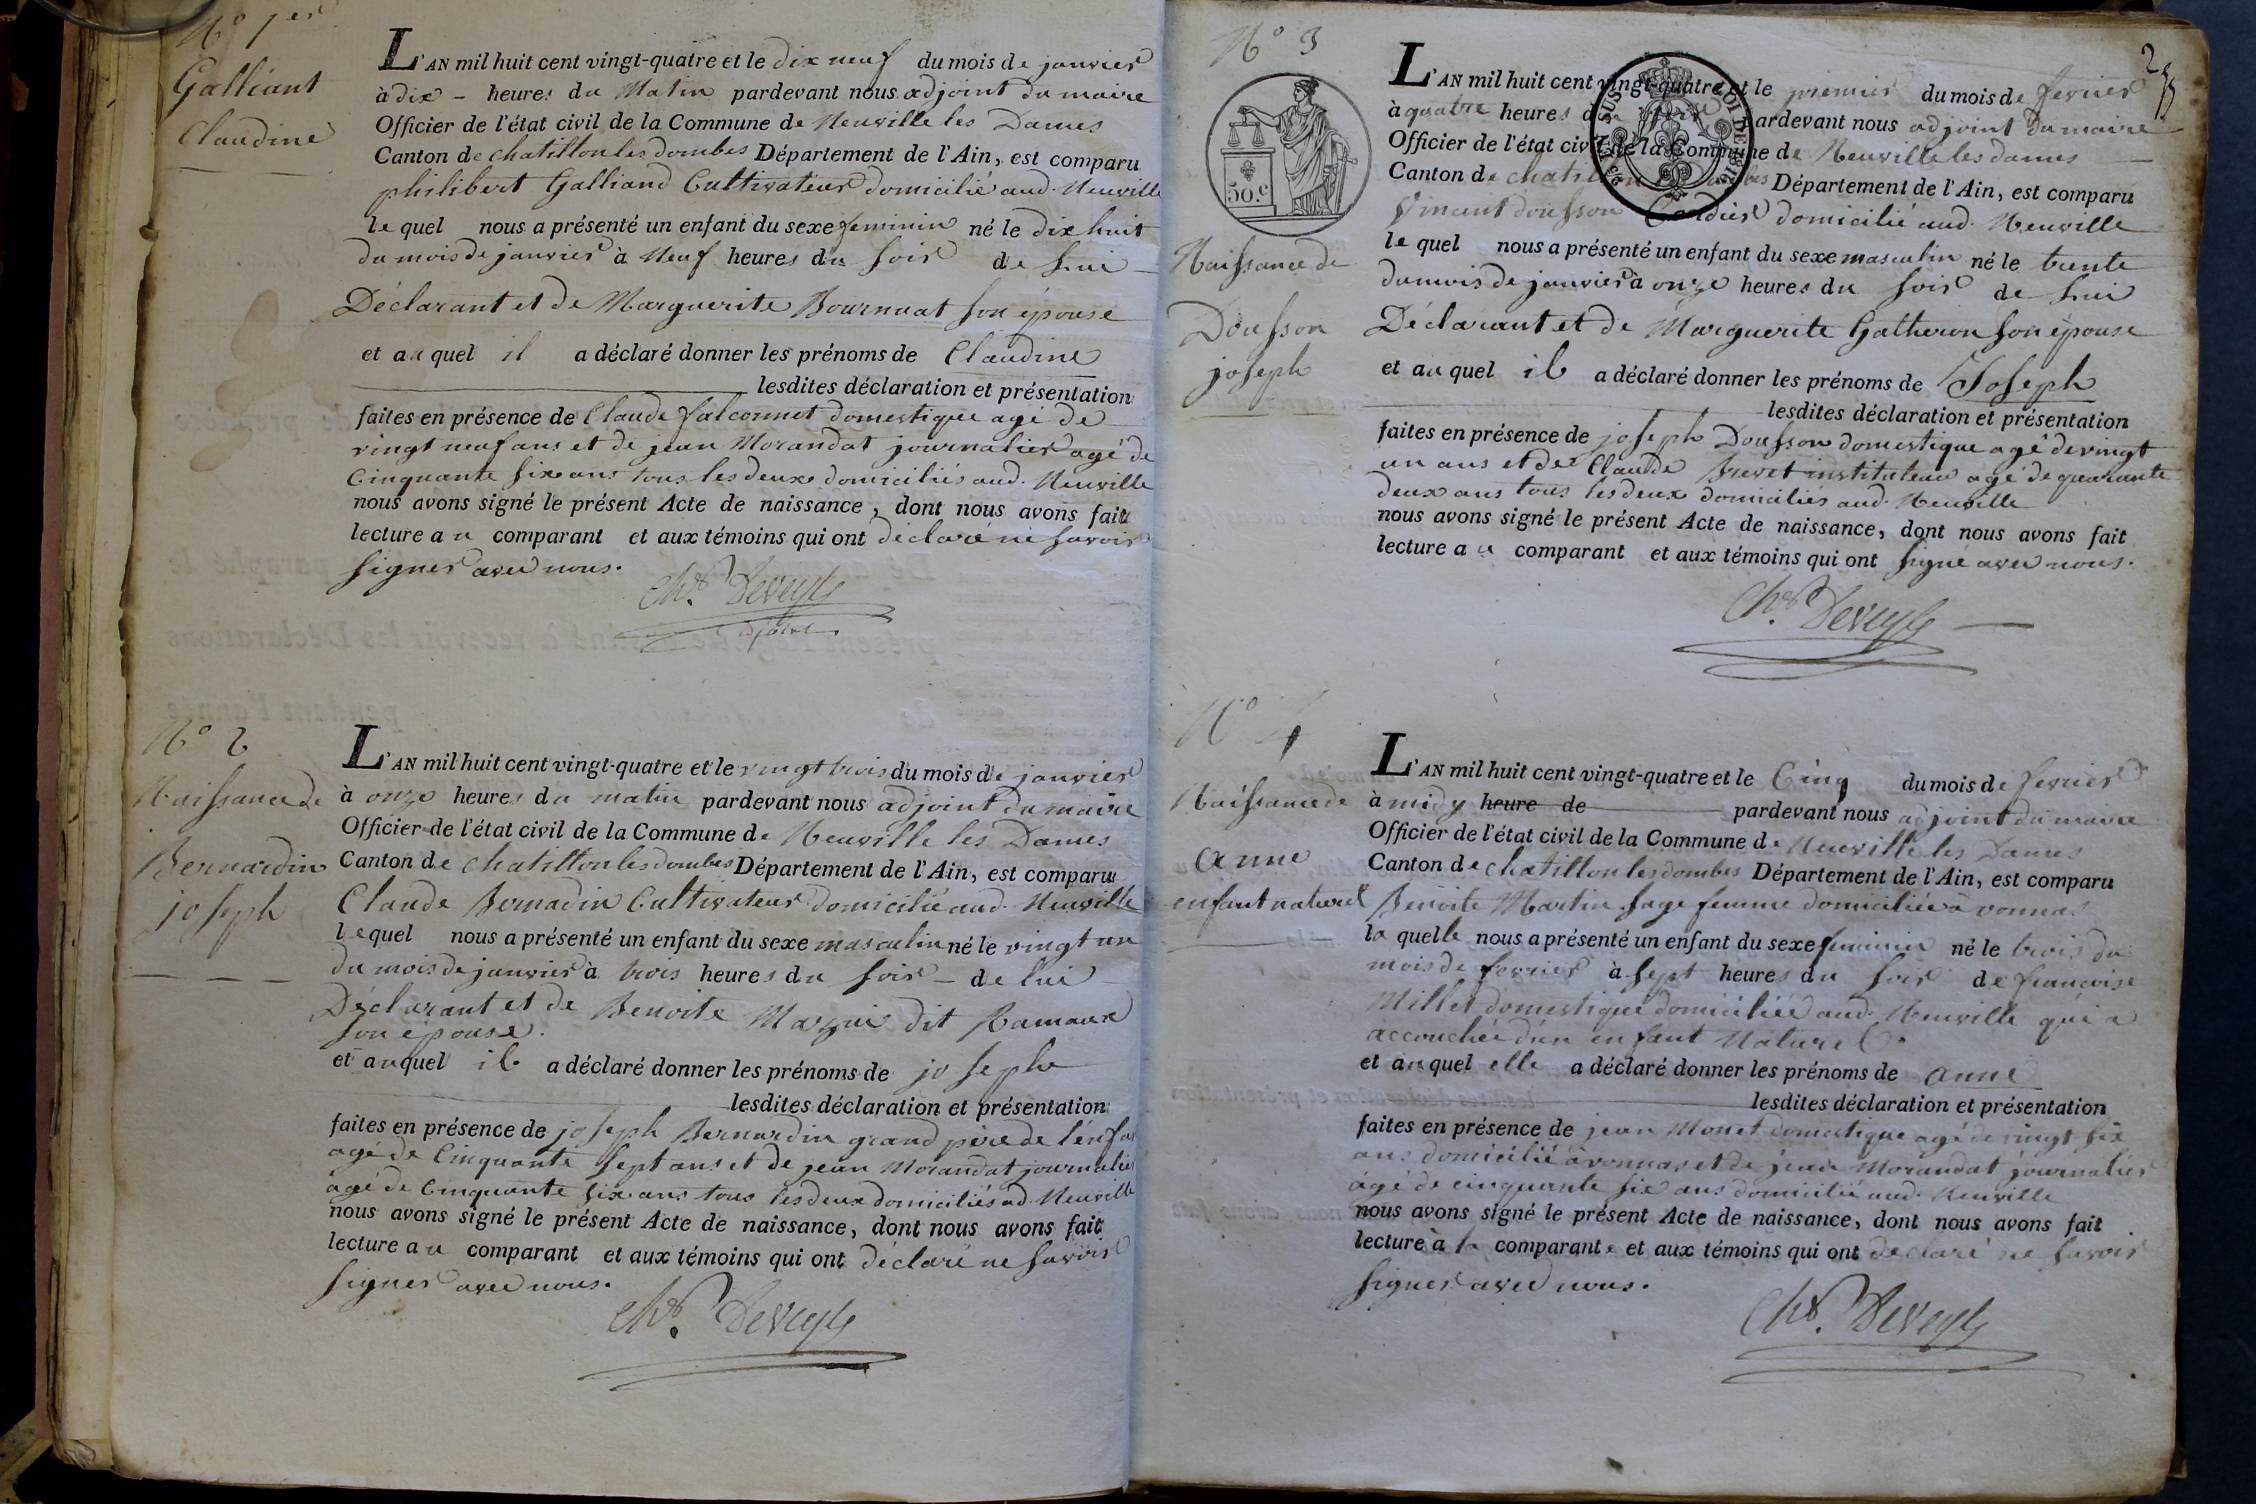 N° 1er
Galliant
Claudine
L'AN mil huit cent vingt-quatre et le dix neuf du mois de janvier
à dix - heures du Matin pardevant nous adjoint du maire
Officier de l'état civil de la Commune de Neuville les Dames
Canton de chatillon les dombes Département de l'Ain, est comparu
philibert Galliand Cultivateur domicilié aud. Neuville
le quel nous a présenté un enfant du sexe feminin né le dix huit
du mois de janvier à Neuf heures du soir de lui
Déclarant et de Marguerite Bournuat son épouse
et au quel il a déclaré donner les prénoms de Claudine
lesdites déclaration et présentation
faites en présence de Claude falconnet domestique agé de
vingt neuf ans et de jean Morandat journalier agé de
Cinquante six ans tous les deux domiciliés aud. Neuville
nous avons signé le présent Acte de naissance, dont nous avons fait
lecture au comparant et aux témoins qui ont déclaré ne savoir
signer avec nous.
Chs. Deveyle
adjoint
N° 2
Naissance de
Bernardin
joseph
L'AN mil huit cent vingt-quatre et le vingt trois du mois de janvier
à onze heures du matin pardevant nous adjoint du maire
Officier de l'état civil de la Commune de Neuville les Dames
Canton de chatillon les dombes Département de l'Ain, est comparu
Claude Bernadin Cultivateur domicilié aud. Neuville
lequel nous a présenté un enfant du sexe masculin né le vingt un
du mois de janvier à trois heures du soir - de lui
Déclarant et de Benoite Mazuir dit Ramaux
son épouse.
et auquel il a déclaré donner les prénoms de joseph
lesdites déclaration et présentation
faites en présence de joseph Bernardin grand père de l'enfant
agé de Cinquante sept ans et de jean Morandat journalier
agé de Cinquante six ans tous les deux domiciliés ad. Neuville
nous avons signé le présent Acte de naissance, dont nous avons fait
lecture au comparant et aux témoins qui ont déclaré ne savoir
signer avec nous.
Chs. Deveyle
2
N° 3
50.c
Naissance de
Dousson
joseph
L'AN mil huit cent vingt-quatre et le premier du mois de fevrier
à quatre heures du soir pardevant nous adjoint du maire
Officier de l'état civil de la Commune de Neuville les dames
Canton de chatillon les dombes Département de l'Ain, est comparu
Vincent dousson domicilié aud. Neuville
le quel nous a présenté un enfant du sexe masculin né le trente
du mois de janvier à onze heures du soir de lui
Déclarant et de Marguerite Gatheron son épouse
et au quel il a déclaré donner les prénoms de Joseph
lesdites déclaration et présentation
faites en présence de joseph Dousson domestique agé de vingt
un ans et de Claude Brevet instituteur agé de quarante
deux ans tous les deux domiciliés aud. Neuville
nous avons signé le présent Acte de naissance, dont nous avons fait
lecture au comparant et aux témoins qui ont signé avec nous.
Chs. Deveyle
N° 4
Naissance de
anne
enfant naturel
L'AN mil huit cent vingt-quatre et le Cinq du mois de fevrier
à midy heure de pardevant nous adjoint du maire
Officier de l'état civil de la Commune de Neuville les Dames
Canton de chatillon les dombes Département de l'Ain, est comparu
Benoite Martin sage femme domiciliée à vonnas
la quelle nous a présenté un enfant du sexe feminin né le trois du
mois de fevrier à sept heures du soir de francoise
Millet domestique domiciliée aud. Neuville qui a
accouchée d'un enfant Naturel.
et au quel elle a déclaré donner les prénoms de anne
lesdites déclaration et présentation
faites en présence de jean Monet domestique agé de vingt six
ans domicilié à vonnas et de jean Morandat journalier
âgé de cinquante six ans domicilié aud. Neuville
nous avons signé le présent Acte de naissance, dont nous avons fait
lecture à la comparante et aux témoins qui ont declaré ne savoir
signer avec nous.
Chs. Deveyle